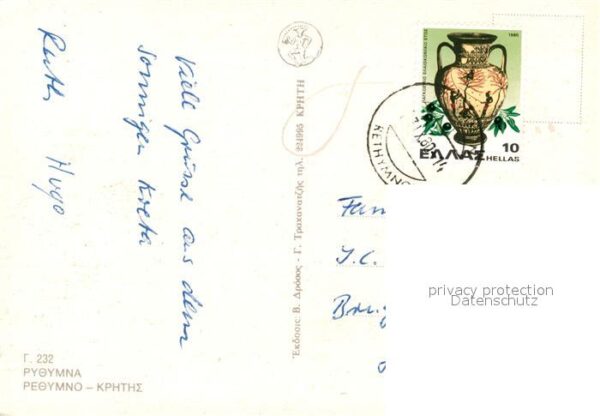 Viele Grüsse aus dem
sonnigen Kreta
Ruth Hugo
Γ. 232
ΡΥΘΥΜΝΑ
ΡΕΘΥΜΝΟ – ΚΡΗΤΗΣ
Ἔκδοσις Β. Δρόσος - Γ. Τραχανατζῆς τηλ. 221995 ΚΡΗΤΗ
1980
10
ΕΛΛΑΣ HELLAS
ΡΕΘΥΜΝΟ
Fam
J.C.
privacy protection
Datenschutz